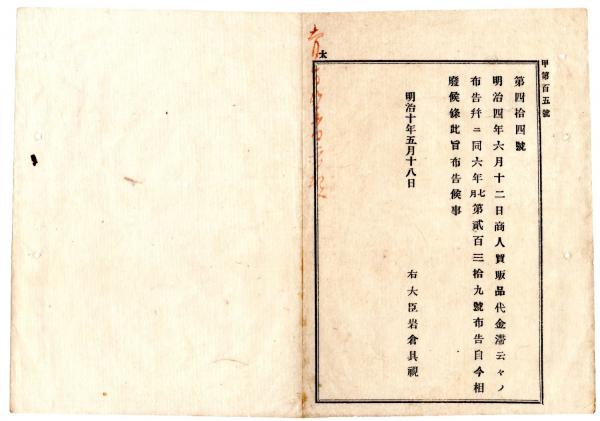 甲第百五號
第四拾四號
明治四年六月十二日商人賣販品代金滯云々ノ
布告幷ニ同六年七月第貳百三拾九號布告自今相
廢候條此旨布告候事
明治十年五月十八日
右大臣岩倉具視
太